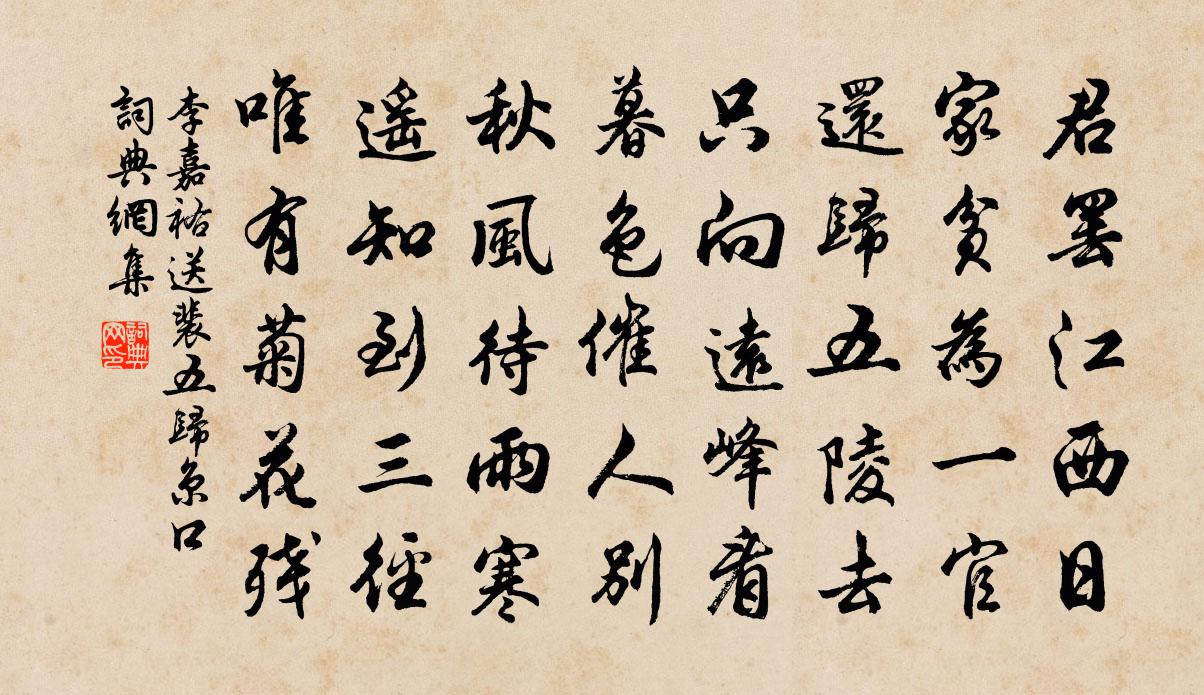 君罢江西日
家貧為一官
還歸五陵去
只向遠峰看
暮色催人別
秋風待雨寒
遥知到三徑
唯有菊花残
李嘉祐送裴五歸京口
詞典網集
詞典网印